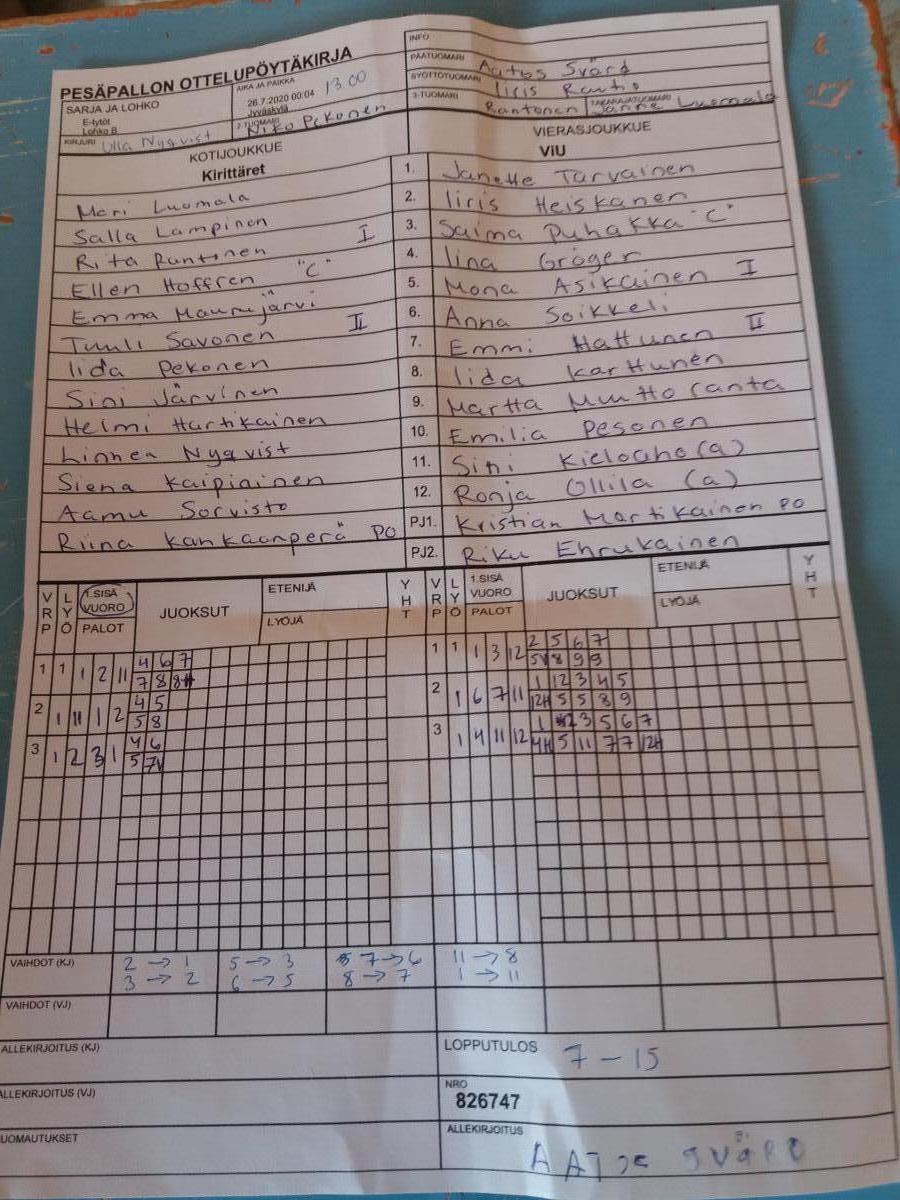 PESÄPALLON OTTELUPÖYTÄKIRJA
INFO
PÄÄTUOMARI Aatos Svärd
SYÖTTÖTUOMARI Iiris Rautio
3-TUOMARI Rantonen TAKARAJATUOMARI Janne Luomala
SARJA JA LOHKO
E-tytöt
Lohko B
AIKA JA PAIKKA 13.00
26.7.2020 00:04
Jyväskylä
2-TUOMARI Niko Pekonen
KIRJURI Ulla Nyqvist
KOTIJOUKKUE
Kirittäret
VIERASJOUKKUE
ViU
Meri Luomala 1. Janette Tarvainen
Salla Lampinen 2. Iiris Heiskanen
Rita Runtonen I 3. Saima Puhakka "C"
Ellen Hoffren "C" 4. Iina Gröger
Emma Maunujärvi 5. Mona Asikainen I
Tuuli Savonen II 6. Anna Soikkeli
Iida Pekonen 7. Emmi Hattunen II
Sini Järvinen 8. Iida Karttunen
Helmi Hartikainen 9. Martta Muttoranta
Linnea Nyqvist 10. Emilia Pesonen
Siena Kaipiainen 11. Sini Kieloaho (a)
Aamu Sorvisto 12. Ronja Ollila (a)
Riina Kankaanperä PO PJ1. Kristian Martikainen PO
PJ2. Riku Ehrukainen
VRP LYÖ 1.SISÄ VUORO PALOT JUOKSUT ETENIJÄ LYÖJÄ YHT VRP LYÖ 1.SISÄ VUORO PALOT JUOKSUT ETENIJÄ LYÖJÄ YHT
1 1 1 2 11 4 6 7
7 8 8H
2 1 11 1 2 4 5
5 8
3 1 2 3 1 4 6
5 7V
1 1 1 3 12 2 5 6 7
5V 8 9 9
2 1 6 7 11 1 12 3 4 5
12H 5 5 8 9
3 1 4 11 12 1 2 3 5 6 7
4H 5 11 7 7 12H
VAIHDOT (KJ) 2 → 1 5 → 3 7 → 6 11 → 8
3 → 2 6 → 5 8 → 7 1 → 11
VAIHDOT (VJ)
ALLEKIRJOITUS (KJ)
LOPPUTULOS 7 – 15
ALLEKIRJOITUS (VJ)
NRO
826747
HUOMAUTUKSET
ALLEKIRJOITUS
AATOS SVÄRD